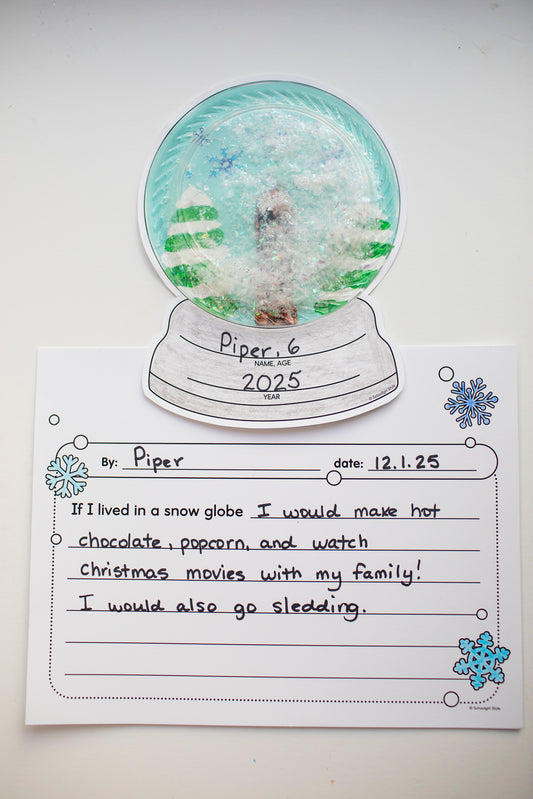 Piper, 6
NAME, AGE
2025
YEAR
© Schoolgirl Style
By: Piper date: 12.1.25
If I lived in a snow globe I would make hot
chocolate, popcorn, and watch
Christmas movies with my family!
I would also go sledding.
© Schoolgirl Style